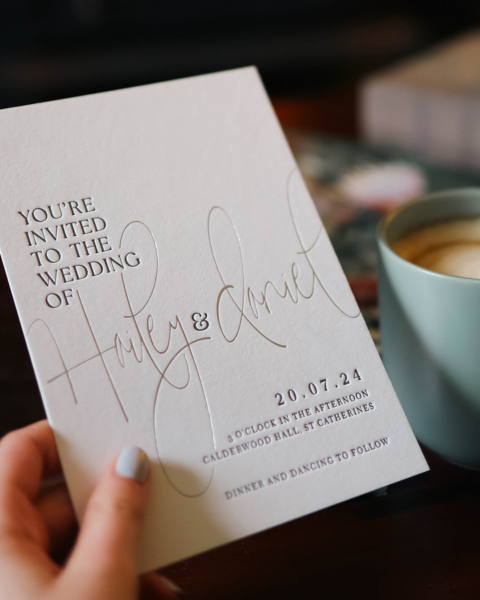 YOU'RE
INVITED
TO THE
WEDDING
OF
Hailey & daniel
20.07.24
3 O'CLOCK IN THE AFTERNOON
CALDERWOOD HALL, ST CATHERINES
DINNER AND DANCING TO FOLLOW